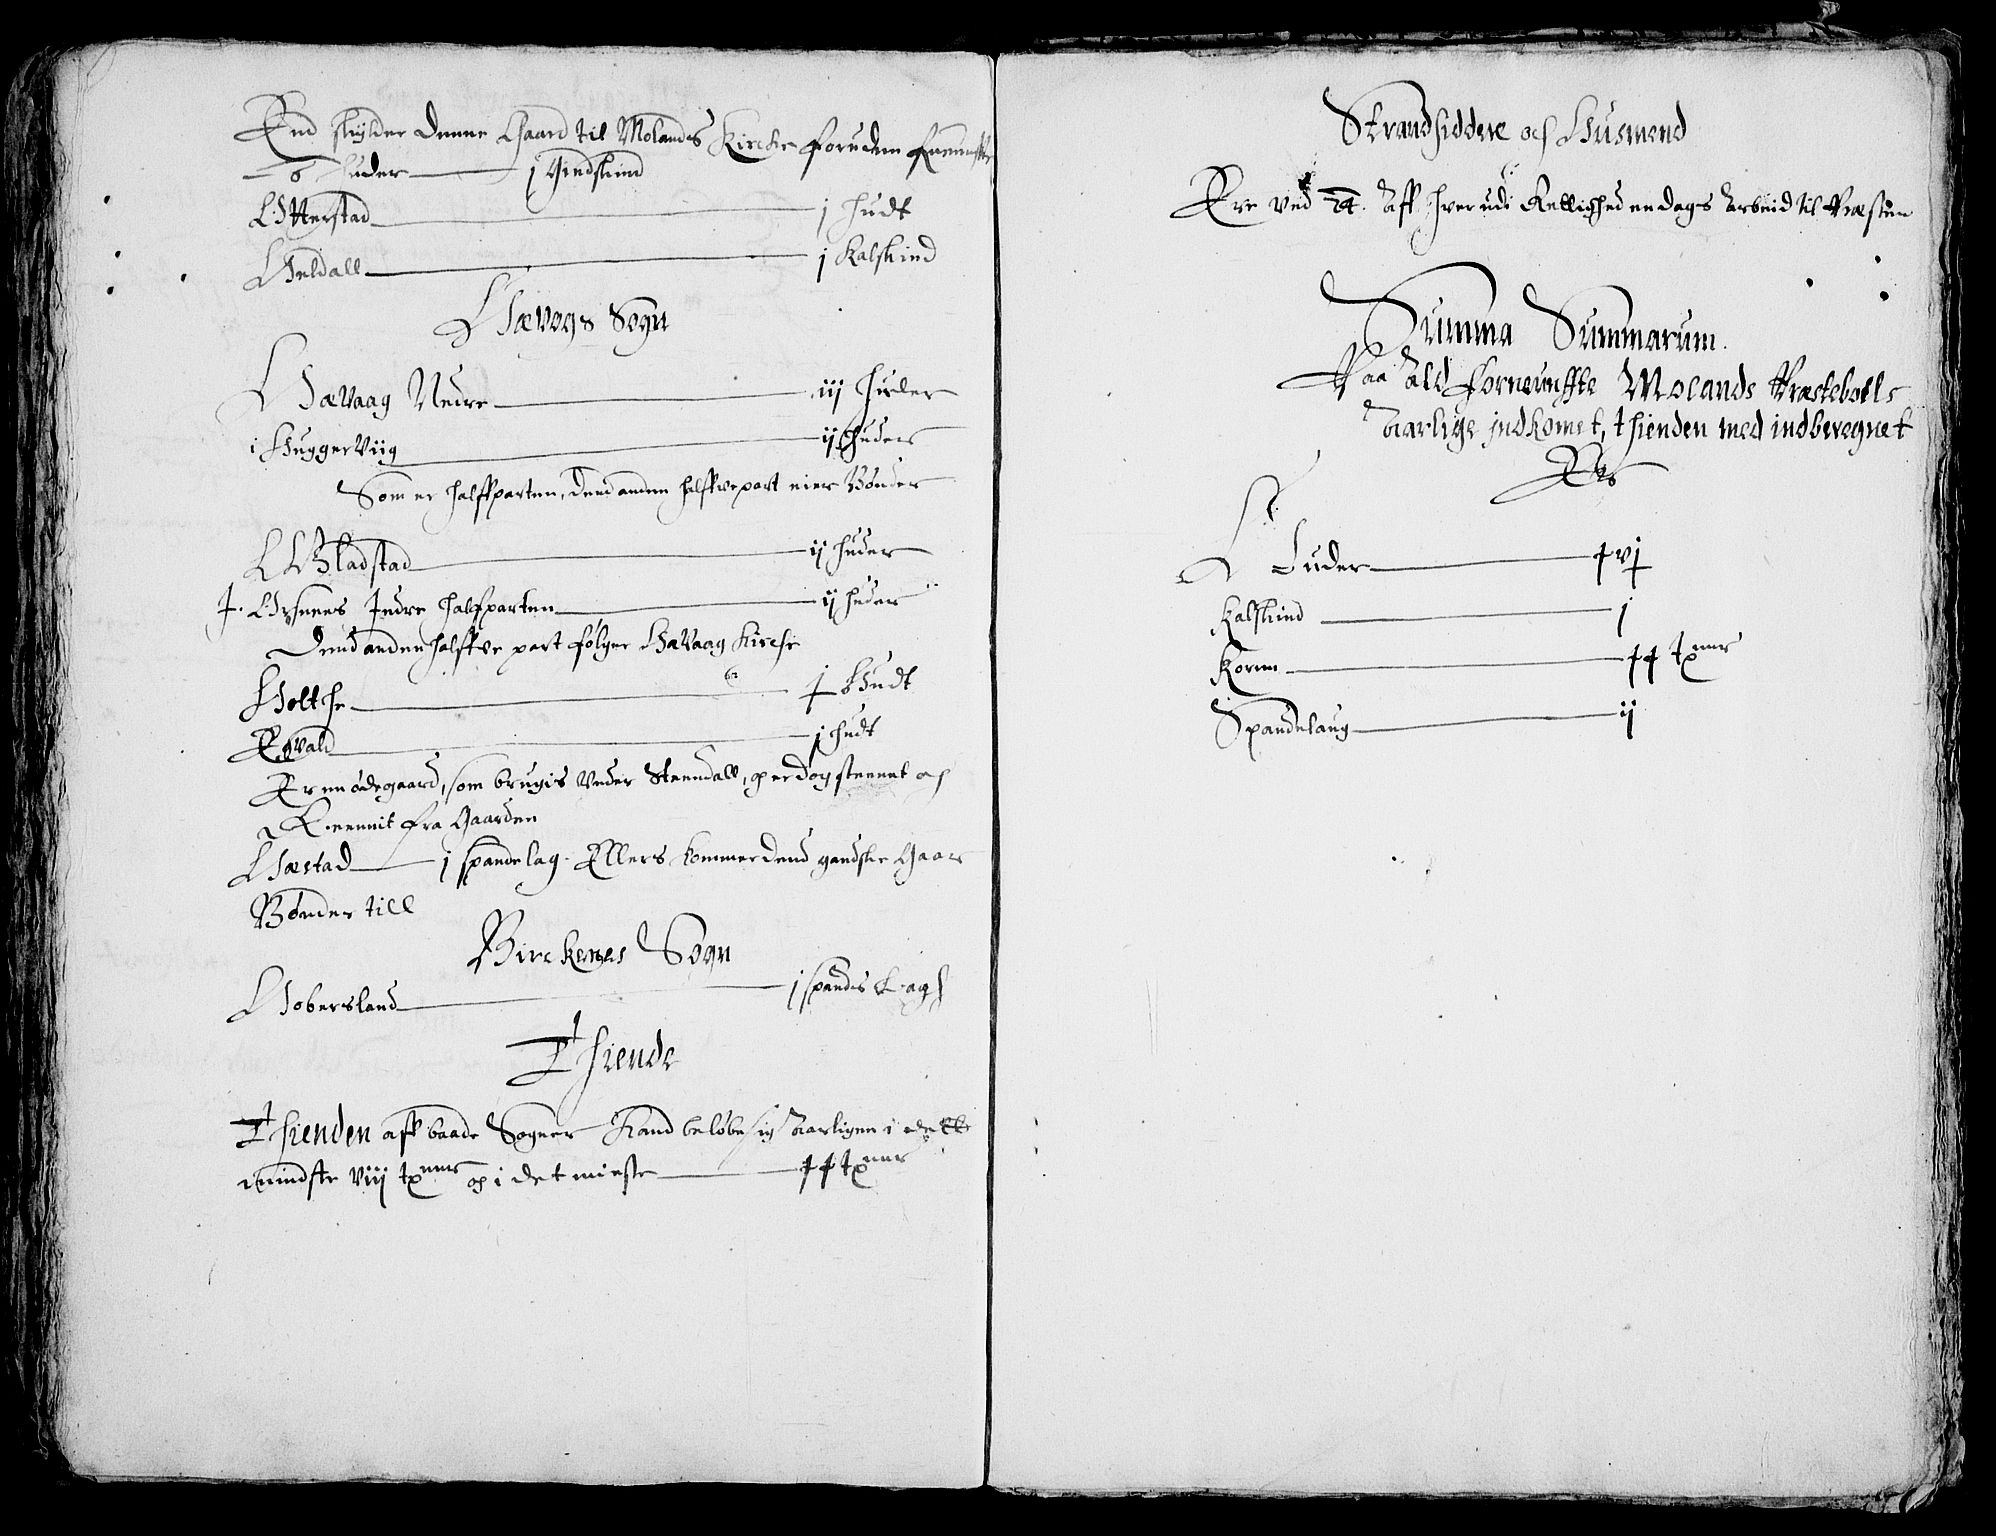 End skylder denne Gaard til Molands Kirche foruden forneunffte
Huder j Gindskind
Otterstad j Hudt
Heldall j Kalskind
Hævogs Sogn
Hævaag Nedre iij Huder
i Huggerviig ij Huder
Som er halffparten, dend anden halffvepart eier Bønder
Bladstad ij Huder
Ørsnees Indre halfparten ij huder
Dend anden halffve part følger Hævaag Kirche
Holthe ½ Hudt
Egvald j hudt
Er en ødegaard, som brugis under Steendall, og er dog steenet och
Reennit fra Gaarden
Hæstad j spandelag. Ellers kommer dend gandske Gaar
Bønder till
Birckenes Sogn
Hobersland j spands Lagh
Thiende
Thienden aff baade Sogner Kand beløbe sig Aarligen i dette
mindste viij tønner og i det meiste ½4 tønner
Strandsiddere och Husmend
Ere ved 24. Aff hver udi Rettighed en dags Arbeid til Præsten
Summa Summarum.
Paa ald forneunffte Molands Præstebolls
Aarlige jndkomet, thienden med indberegnet
Er
Huder ½vj
Kalskind j
Korn ½4 tønner
Spandelaug ij